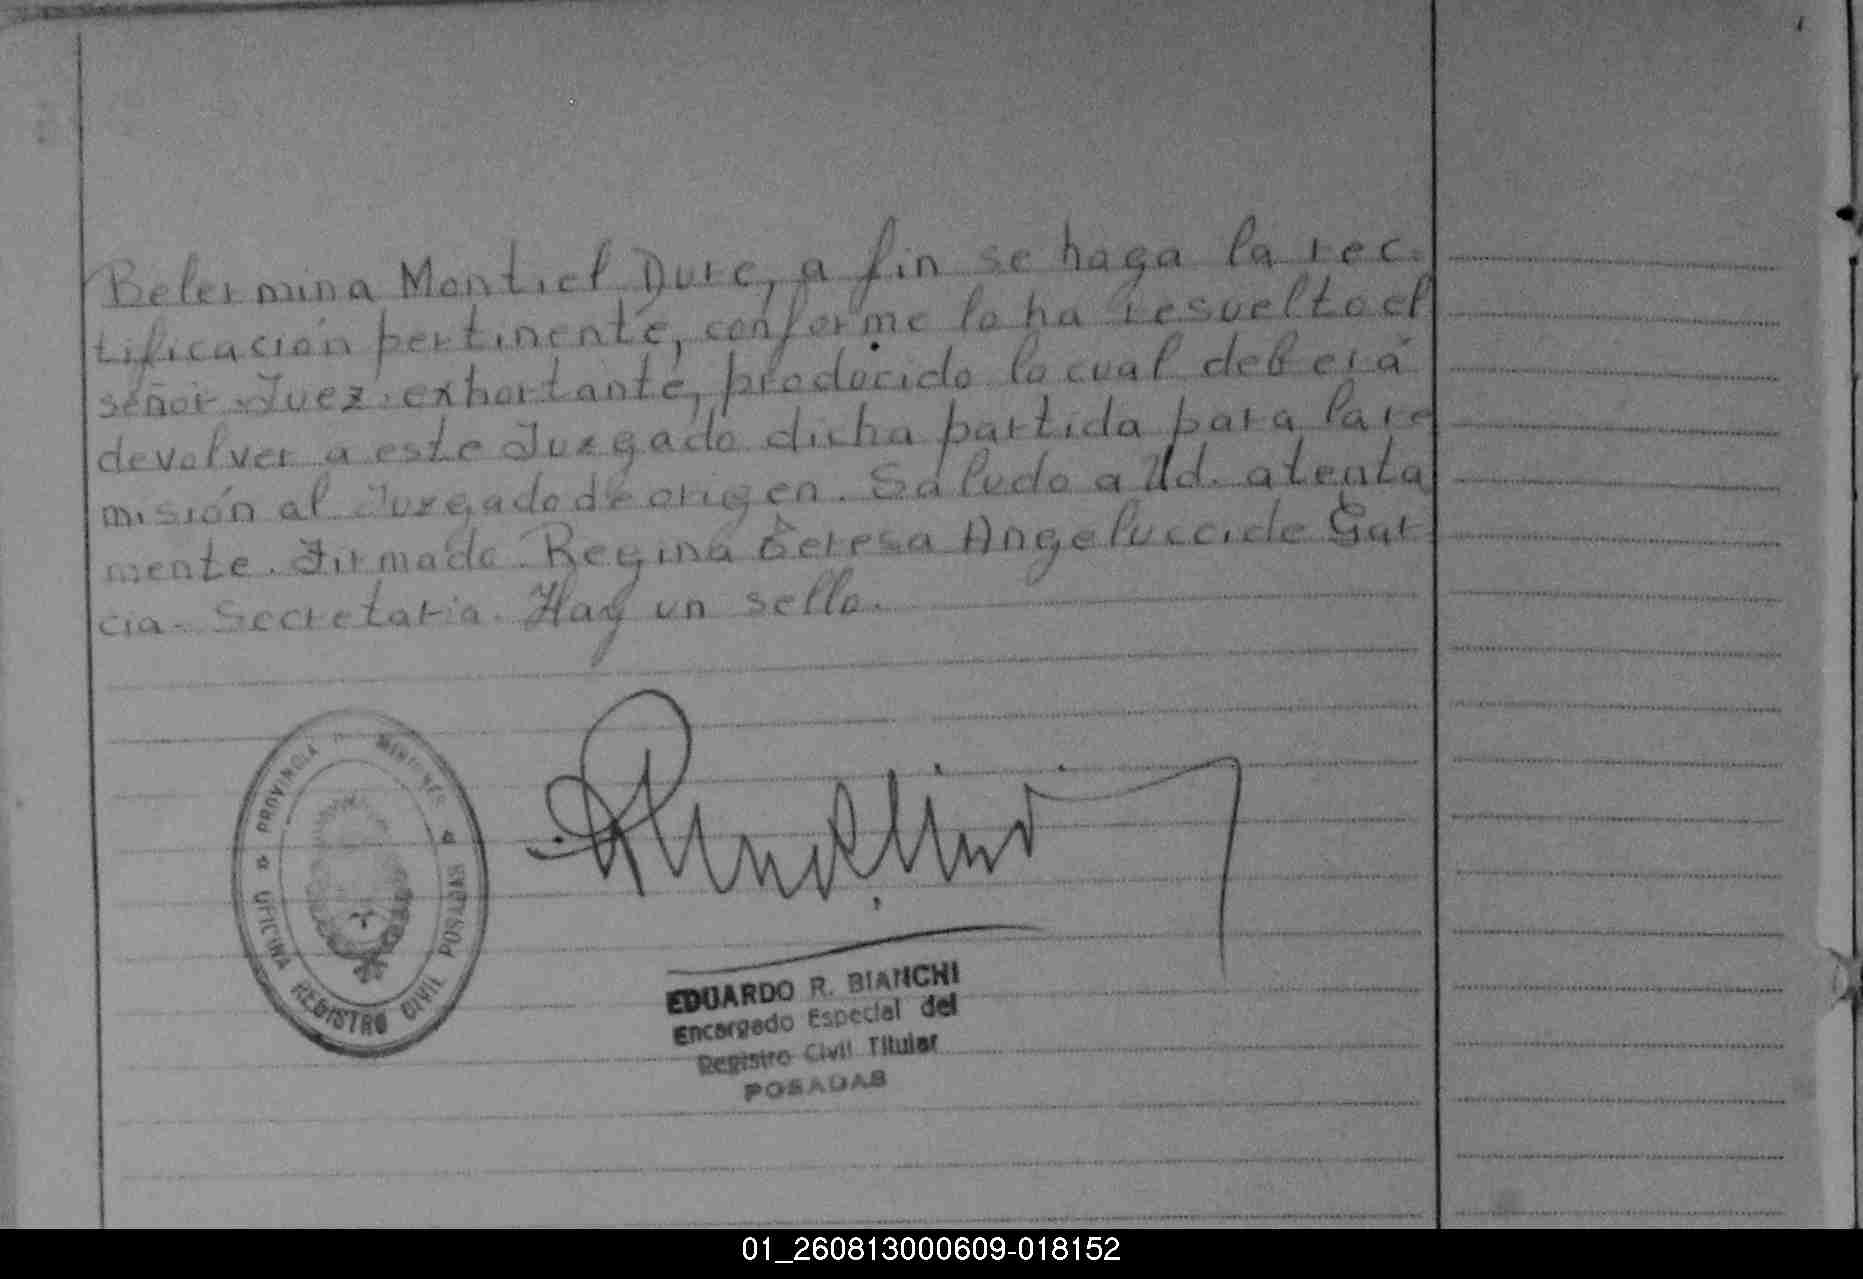 Belermina Montiel Dure, a fin se haga la rec-
tificación pertinente, conforme lo ha resuelto el
señor Juez exhortante, producido lo cual deberá
devolver a este Juzgado dicha partida para la re
misión al Juzgado de origen. Saludo a Ud. atenta
mente. Firmado. Regina Teresa Angelucci de Gar-
cia. Secretaria. Hay un sello.
PROVINCIA DE MISIONES
OFICINA REGISTRO CIVIL POSADAS
EDUARDO R. BIANCHI
Encargado Especial del
Registro Civil Titular
POSADAS
01_260813000609-018152